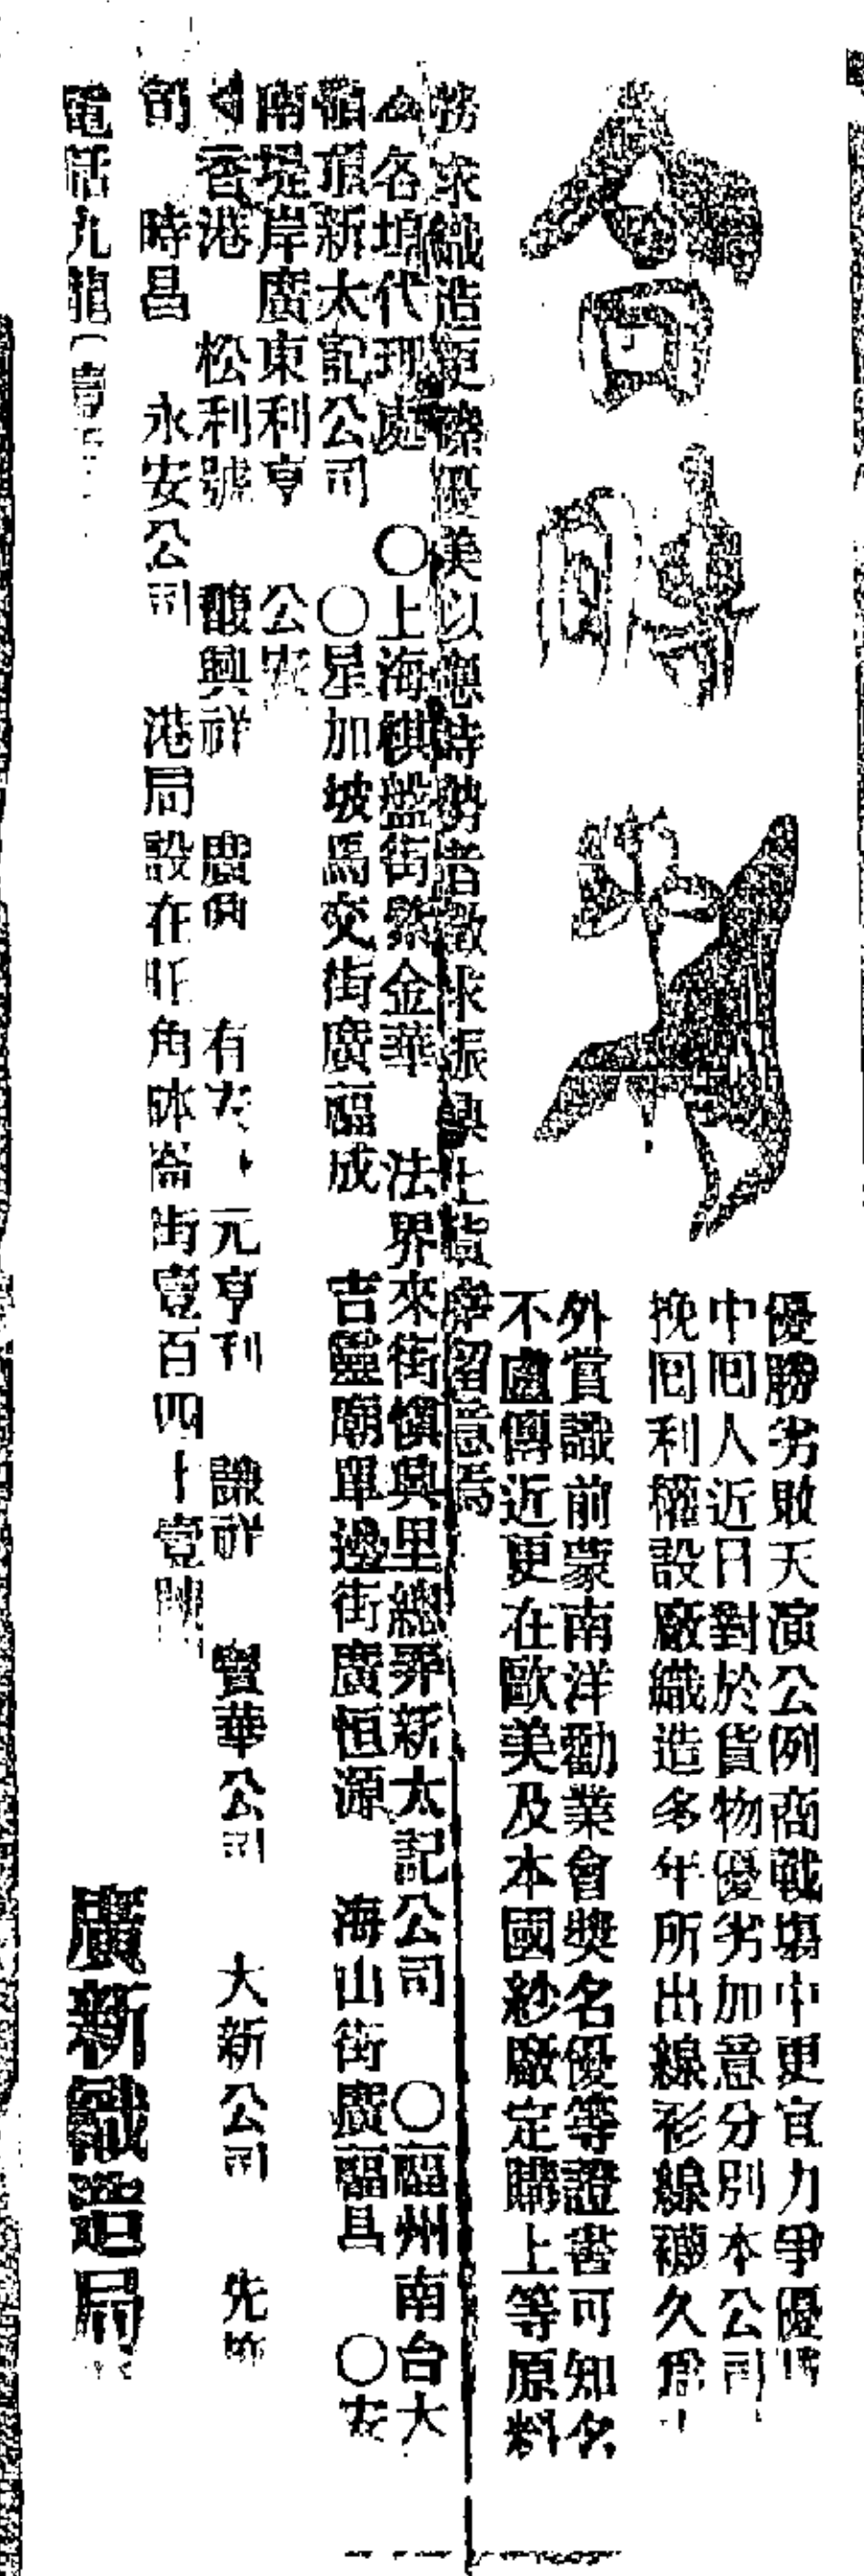 合時者
優勝劣敗天演公例商戰塲中更宜力爭優勝
中囘人近日對於貨物優劣加意分別本公司
挽囘利權設廠織造多年所出線衫線襪久爲中
外賞識前蒙南洋勸業會奬名優等證書可知名
不盧傳近更在歐美及本國紗廠定購上等原料
務求織造更臻優美以應時勢者徵求振興土貨者留意焉
各埠代理處 〇上海棋盤街 金華 法界來街慎興里總弄新太記公司 〇福州南台大
嶺頂新太記公司 〇星加坡馬交街廣福成 吉靈廟單邊街廣恒源 海山街廣福昌 〇安
南堤岸廣東利亨 公安
香港 松利號 馥興祥 廣 有 元亨利 謙祥 寶華公司 大新公司 先施
時昌 永安公司 港局設在旺角砵崙街壹百四十壹號
電話九龍
廣新織造局